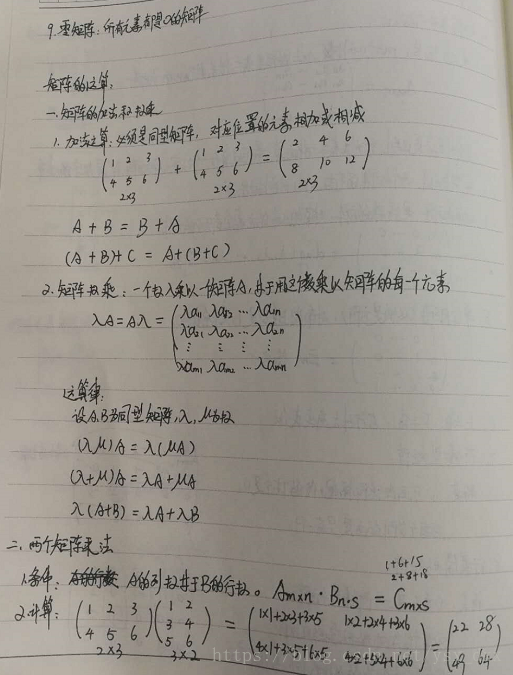 9. 零矩阵：所有元素都是0的矩阵
矩阵的运算，
一. 矩阵的加法和数乘
1. 加法运算：必须是同型矩阵，对应位置的元素相加或相减
(1 2 3
4 5 6) + (1 2 3
4 5 6) = (2 4 6
8 10 12)
2×3 2×3 2×3
A + B = B + A
(A + B) + C = A + (B + C)
2. 矩阵数乘：一个数λ乘以一个矩阵A，等于用这个数乘以矩阵的每一个元素
λA = Aλ = (λa11 λa12 ... λa1n
λa21 λa22 ... λa2n
⋮ ⋮ ⋮ ⋮
λam1 λam2 ... λamn)
运算律：
设A.B为同型矩阵，λ，μ为数
(λμ)A = λ(μA)
(λ+μ)A = λA + μA
λ(A+B) = λA + λB
二. 两个矩阵乘法
1+6+15
2+8+18
1. 条件： A的列数等于B的行数。 Am×n · Bn·s = Cm×s
2. 计算： (1 2 3
4 5 6) (1 2
3 4
5 6) = (1×1+2×3+3×5 1×2+2×4+3×6
4×1+3×5+6×5 4×2+5×4+6×6) = (22 28
49 64
2×3 3×2
https://blog.csdn.net/